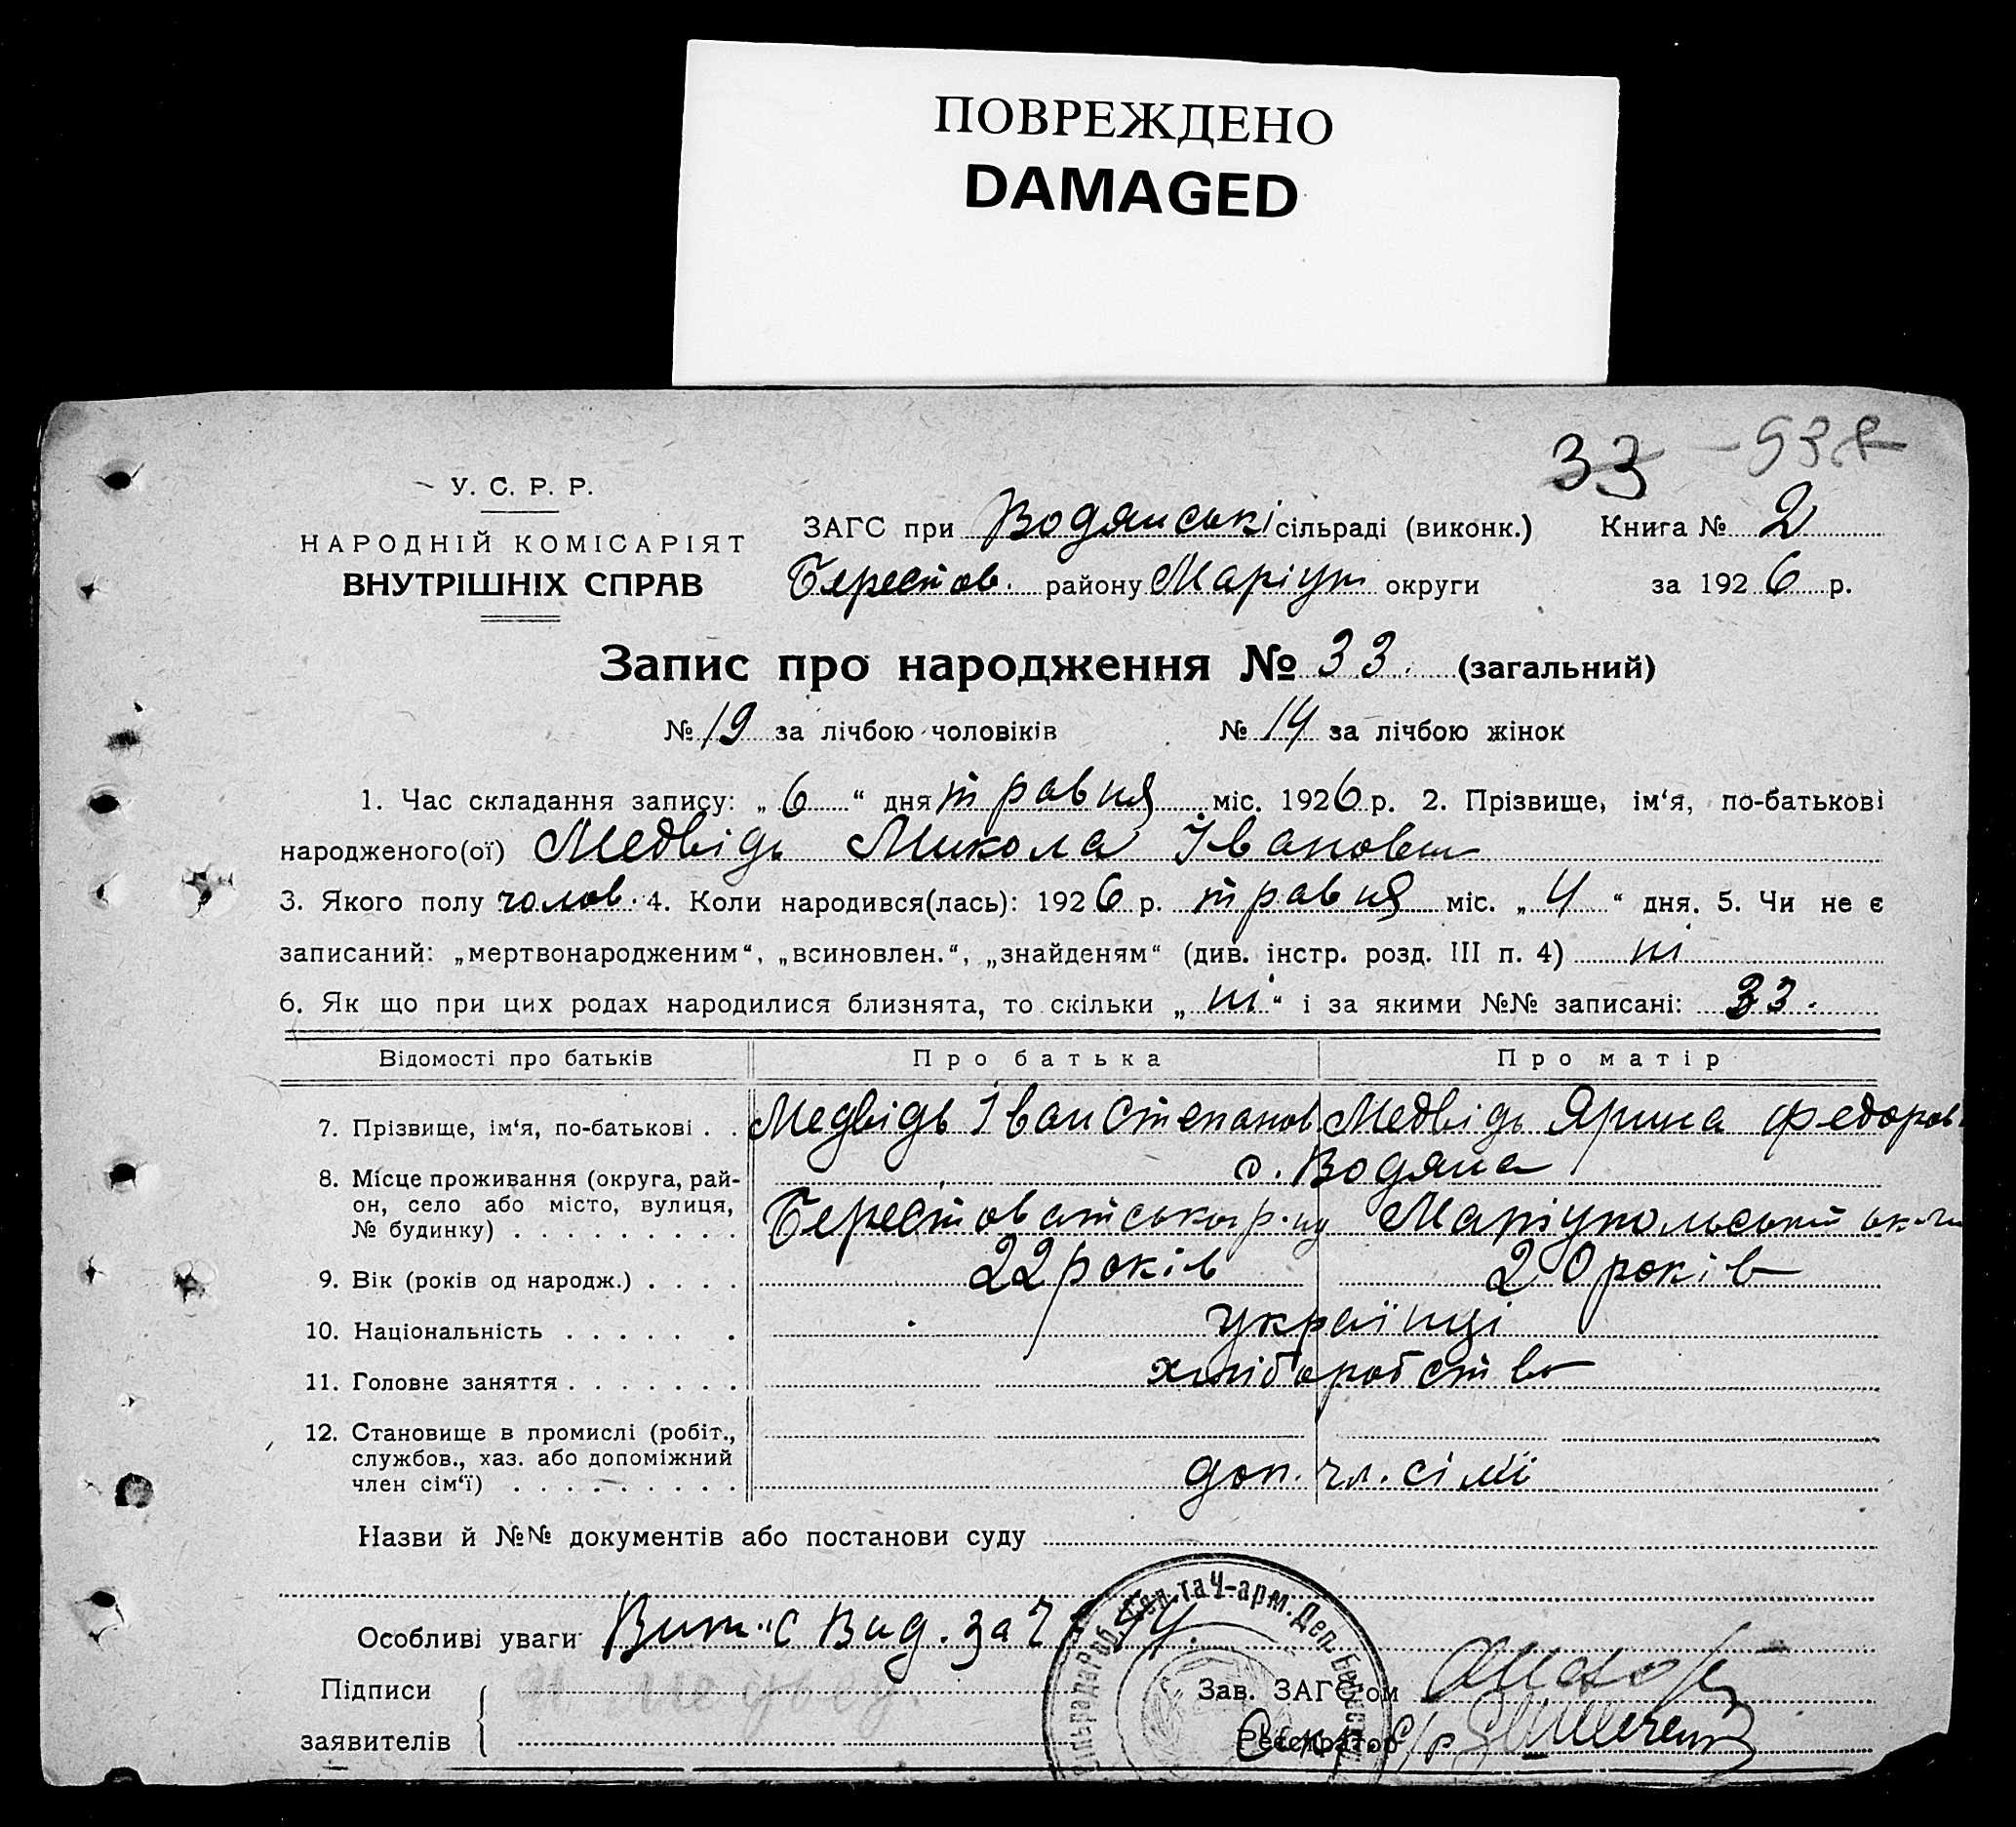 ПОВРЕЖДЕНО
DAMAGED
33 - 538
У. С. Р. Р.
НАРОДНІЙ КОМІСАРІЯТ
ВНУТРІШНІХ СПРАВ
ЗАГС при Водянські сільраді (виконк.) Книга № 2
Берестов. району Маріуп округи за 1926 р.
Запис про народження № 33. (загальний)
№ 19 за лічбою чоловіків № 14 за лічбою жінок
1. Час складання запису: „ 6 “ дня травня міс. 1926 р. 2. Прізвище, ім‘я, по-батькові
народженого(ої) Медвідь Микола Іванович
3. Якого полу чолов. 4. Коли народився(лась): 1926 р. травня міс. „ 4 “ дня. 5. Чи не є
записаний: „мертвонародженим“, „всиновлен.“, „знайденям“ (див. інстр. розд. III п. 4) ні
6. Як що при цих родах народилися близнята, то скільки „ ні “ і за якими №№ записані: 33.
Відомості про батьків Про батька Про матір
7. Прізвище, ім‘я, по-батькові . . Медвідь Іван Степанов. Медвідь Ярина Федоров
8. Місце проживання (округа, рай-
он, село або місто, вулиця,
№ будинку) . . . . . . . . .
с. Водяна
Берестоватського р-ну Маріупольської
9. Вік (років од народж.) . . . . 22 років 20 років
10. Національність . . . . . . українці
11. Головне заняття . . . . . . . хліборобство
12. Становище в промислі (робіт.,
службов., хаз. або допоміжний
член сім‘ї) . . . . . . . . . доп. чл. сімї
Назви й №№ документів або постанови суду
Особливі уваги Вид. за
Сел. та Ч-арм. Деп.
Підписи
заявителів
Зав. ЗАГСом
Реєстратор Секр. С/р